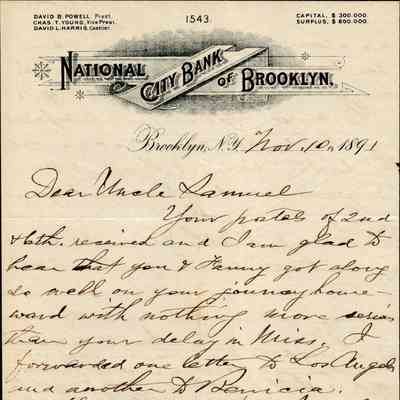 DAVID B. POWELL, Prest.
CHAS. T. YOUNG, Vice Prest.
DAVID L. HARRIS, Cashier.
1543.
CAPITAL, $ 300.000.
SURPLUS, $ 600.000.
NATIONAL CITY BANK OF BROOKLYN.
Brooklyn, N.Y. Nov. 10, 1891
Dear Uncle Samuel
Your postals of 2nd
& 6th. received and I am glad to
hear that you & Fanny got along
so well on your journey home-
ward with nothing more serious
than your delay in Miss. I
forwarded one letter to Los Angeles
and another to Benicia.